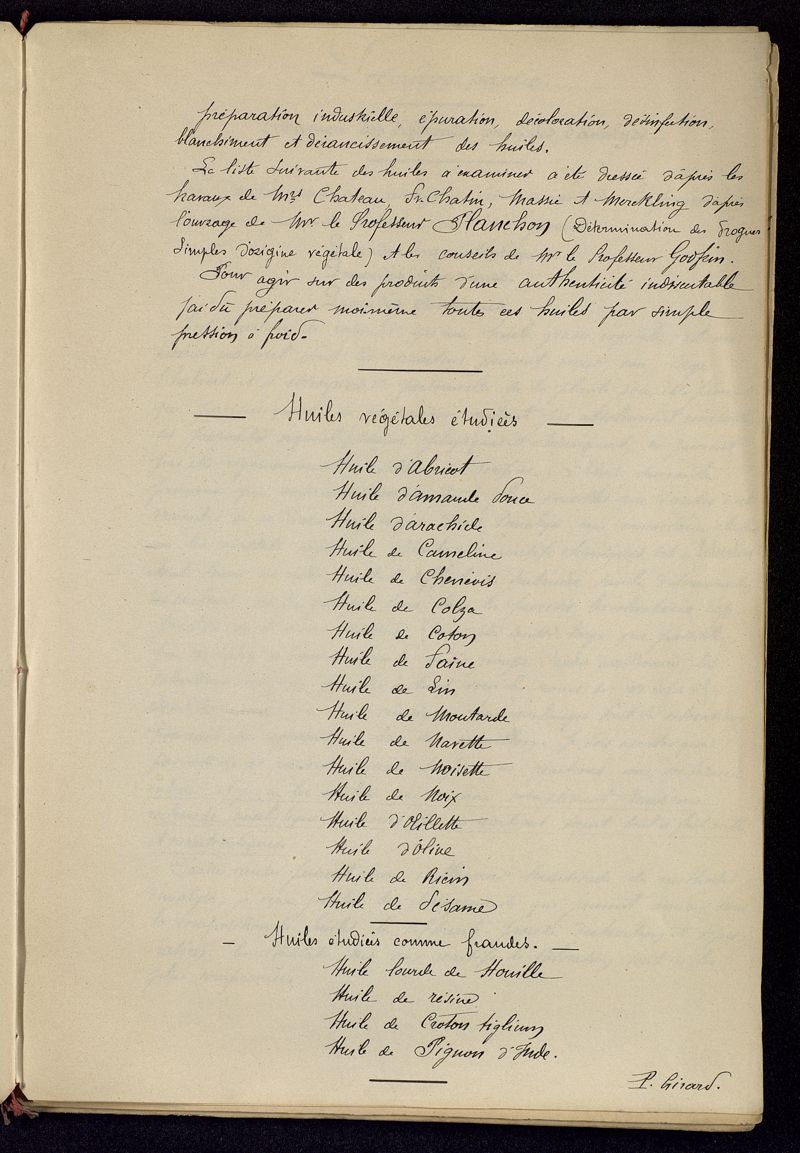 préparation industrielle, épuration, décoloration, désinfection,
blanchiment et dérancissement des huiles.
La liste suivante des huiles à examiner a été dressée d'après les
travaux de Mrs Chateau, Chatin, Massie et Merckling d'après
l'ouvrage de Mr le Professeur Planchon (Détermination des Drogues
simples d'origine végétale) et les conseils de Mr le Professeur Godfrin.
Pour agir sur des produits d'une authenticité indiscutable
j'ai dû préparer moi-même toutes ces huiles par simple
pression à froid.
Huiles végétales étudiées
Huile d'Abricot
Huile d'amande douce
Huile d'arachide
Huile de Cameline
Huile de Chenevis
Huile de Colza
Huile de Coton
Huile de Faine
Huile de Lin
Huile de Moutarde
Huile de Navette
Huile de Noisette
Huile de Noix
Huile d'Œillette
Huile d'Olive
Huile de Ricin
Huile de Sésame
Huiles étudiées comme fraudes.
Huile lourde de Houille
Huile de résine
Huile de Croton tiglium
Huile de Pignon d'Inde.
P. Girard.